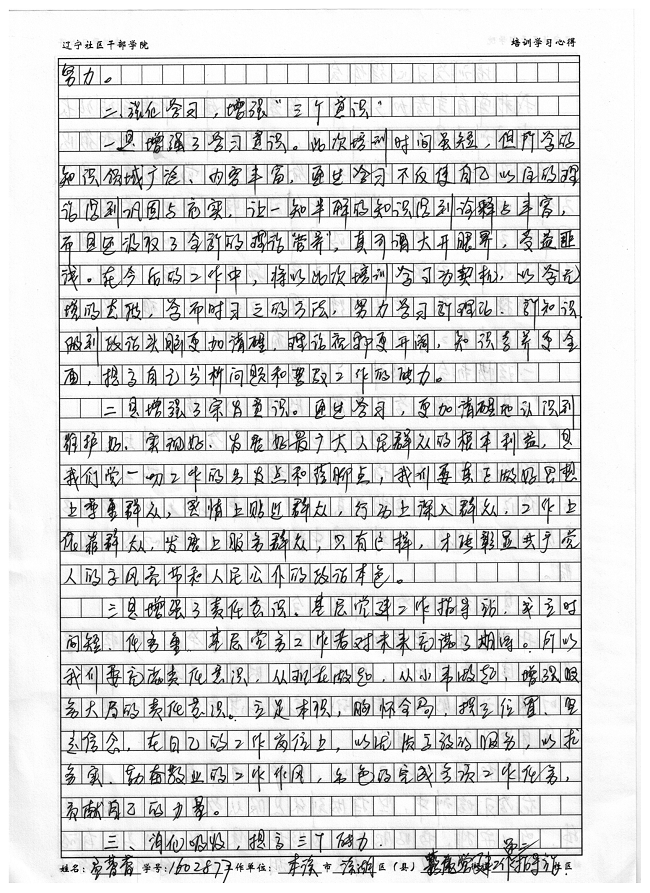 辽宁社区干部学院 培训学习心得
努力。
二、强化学习，增强“三个意识”
一是增强了学习意识。此次培训时间虽短，但所学的
知识领域广泛、内容丰富，通过学习不仅使自己以往的理
论得到巩固与充实，让一知半解的知识得到诠释与丰富，
而且还汲取了全新的理论“营养”，真可谓大开眼界，受益匪
浅。在今后的工作中，将以此次培训学习为契机，以学无
止境的态度，学而时习之的方法，努力学习新理论、新知识
做到政治头脑更加清醒，理论视野更开阔，知识素养更全
面，提高自己分析问题和 工作的能力。
二是增强了宗旨意识。通过学习，更加清醒地认识到
维护好、实现好、发展好最广大人民群众的根本利益，是
我们党一切工作的出发点和落脚点，我们要真正做好思想
上尊重群众，感情上贴近群众，行为上深入群众，工作上
依靠群众，发展上服务群众，只有这样，才能彰显共产党
人的高风亮节和人民公仆的政治本色。
三是增强了责任意识。基层党建工作指导站，成立时
间短、任务重，基层党务工作者对未来充满了期待。所以
我们要充满责任意识，从现在做起，从小事做起，增强服
务大局的责任意识。立足本职，胸怀全局，摆正位置，坚
定信念，在自己的工作岗位上，以优质高效的服务，以求
务实、勤奋敬业的工作作风，出色的完成各项工作任务，
贡献自己的力量。
三、消化吸收，提高三个能力
姓名： 学号：1602877 工作单位：本溪市 溪湖区（县） 社区